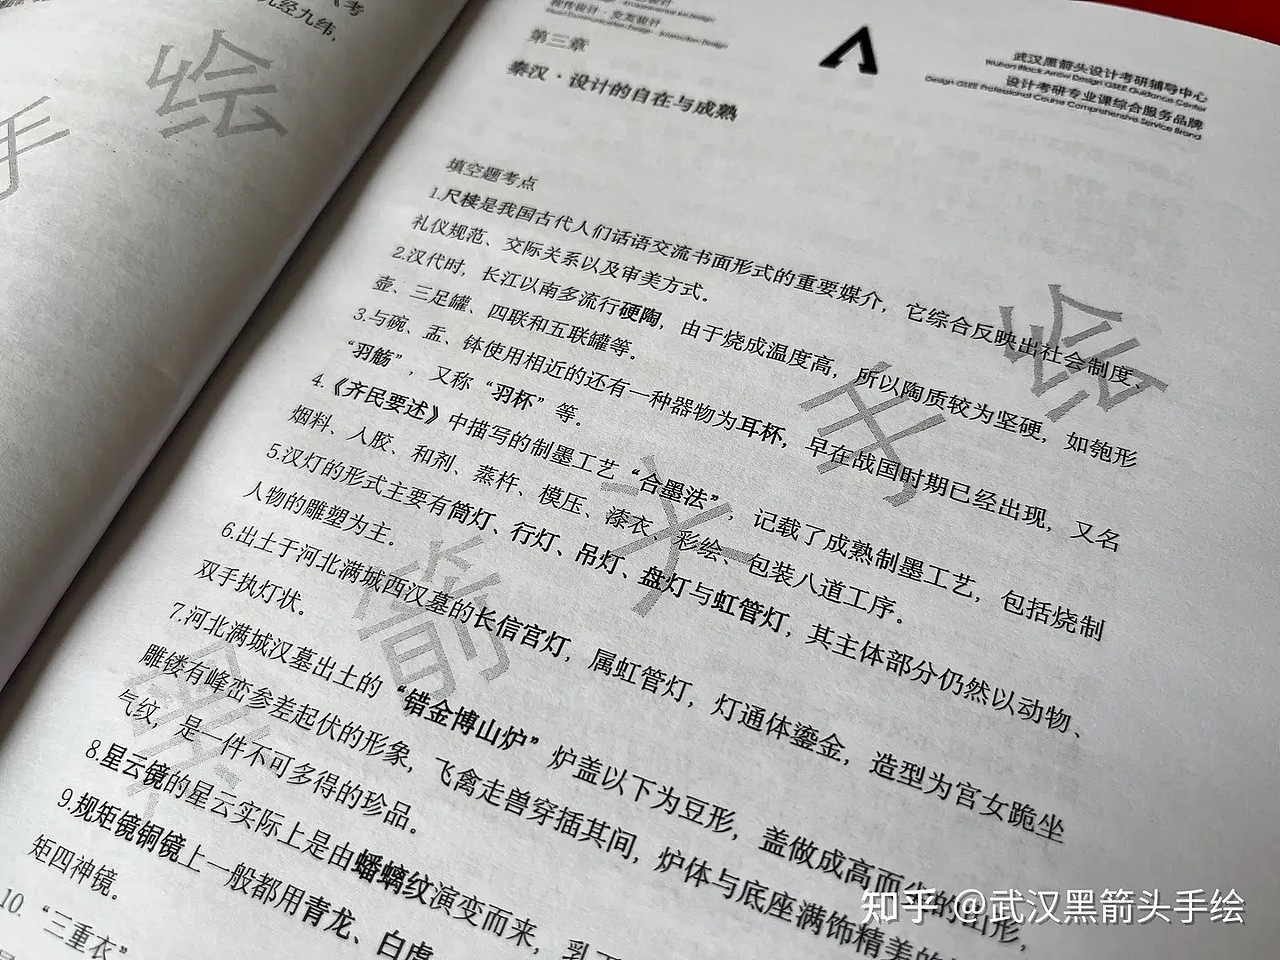 考
九经九纬,
视传设计·交互设计
武汉黑箭头设计考研辅导中心
Wuhan Black Arrow Design GSEE Guidance Center
设计考研专业课综合服务品牌
Design GSEE Professional Course Comprehensive Service Brand
第三章
秦汉·设计的自在与成熟
填空题考点
1.尺牍是我国古代人们话语交流书面形式的重要媒介，它综合反映出社会制度、
礼仪规范、交际关系以及审美方式。
2.汉代时，长江以南多流行硬陶，由于烧成温度高，所以陶质较为坚硬，如匏形
壶、三足罐、四联和五联罐等。
3.与碗、盂、钵使用相近的还有一种器物为耳杯，早在战国时期已经出现，又名
“羽觞”，又称“羽杯”等。
4.《齐民要述》中描写的制墨工艺“合墨法”，记载了成熟制墨工艺，包括烧制
烟料、人胶、和剂、蒸杵、模压、漆衣、彩绘、包装八道工序。
5.汉灯的形式主要有筒灯、行灯、吊灯、盘灯与虹管灯，其主体部分仍然以动物、
人物的雕塑为主。
6.出土于河北满城西汉墓的长信宫灯，属虹管灯，灯通体鎏金，造型为官女跪坐
双手执灯状。
7.河北满城汉墓出土的“错金博山炉”炉盖以下为豆形，盖做成高而尖的山形，
雕镂有峰峦参差起伏的形象，飞禽走兽穿插其间，炉体与底座满饰精美的
气纹，是一件不可多得的珍品。
8.星云镜的星云实际上是由蟠螭纹演变而来，乳
9.规矩镜铜镜上一般都用青龙、白虎
矩四神镜。
10.“三重衣”
手绘
黑箭头手绘
知乎 @武汉黑箭头手绘